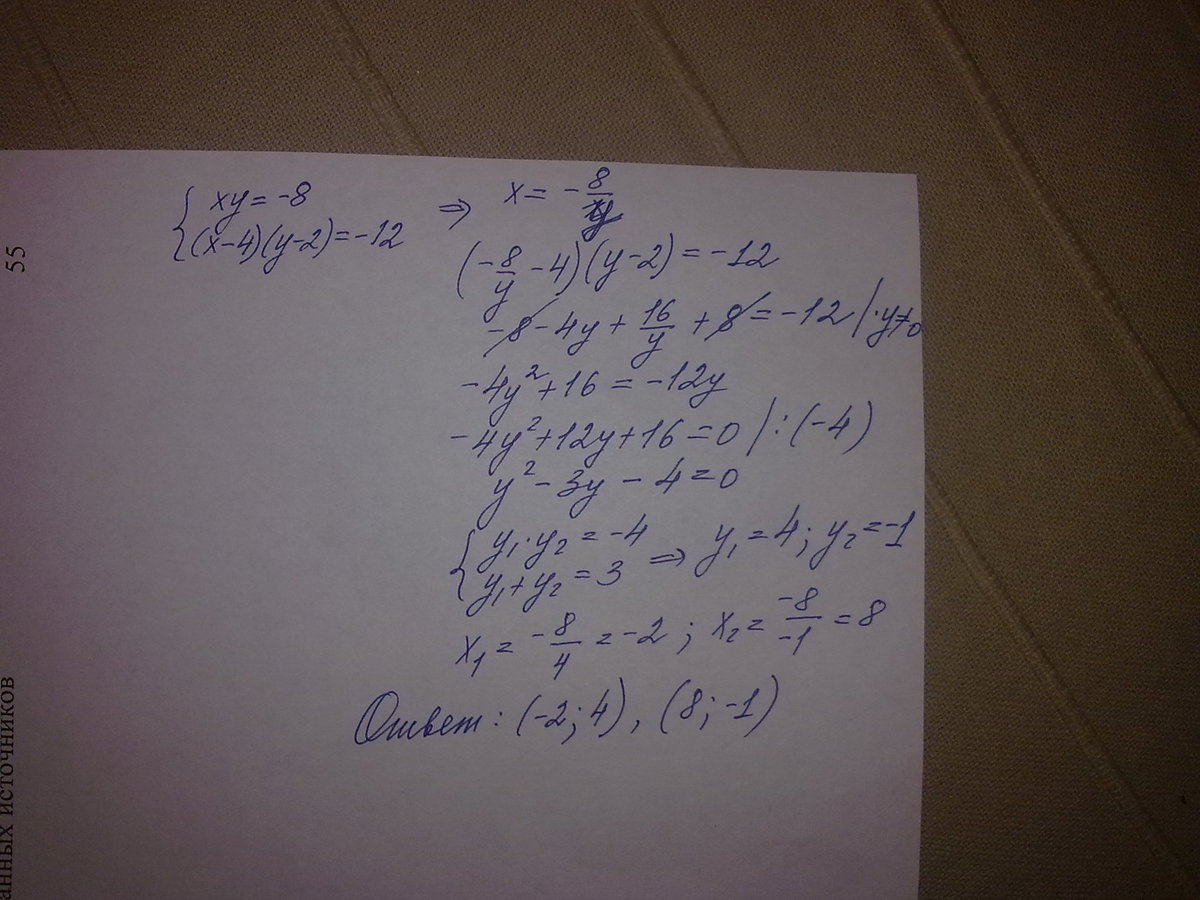 { xy = -8
(x-4)(y-2) = -12 ⇒ x = -8/y
(-8/y - 4)(y-2) = -12
-8 - 4y + 16/y + 8 = -12 | ·y≠0
-4y² + 16 = -12y
-4y² + 12y + 16 = 0 | :(-4)
y² - 3y - 4 = 0
{ y₁·y₂ = -4
y₁+y₂ = 3 ⇒ y₁ = 4; y₂ = -1
x₁ = -8/4 = -2; x₂ = -8/-1 = 8
Ответ: (-2; 4), (8; -1)
55
анных источников